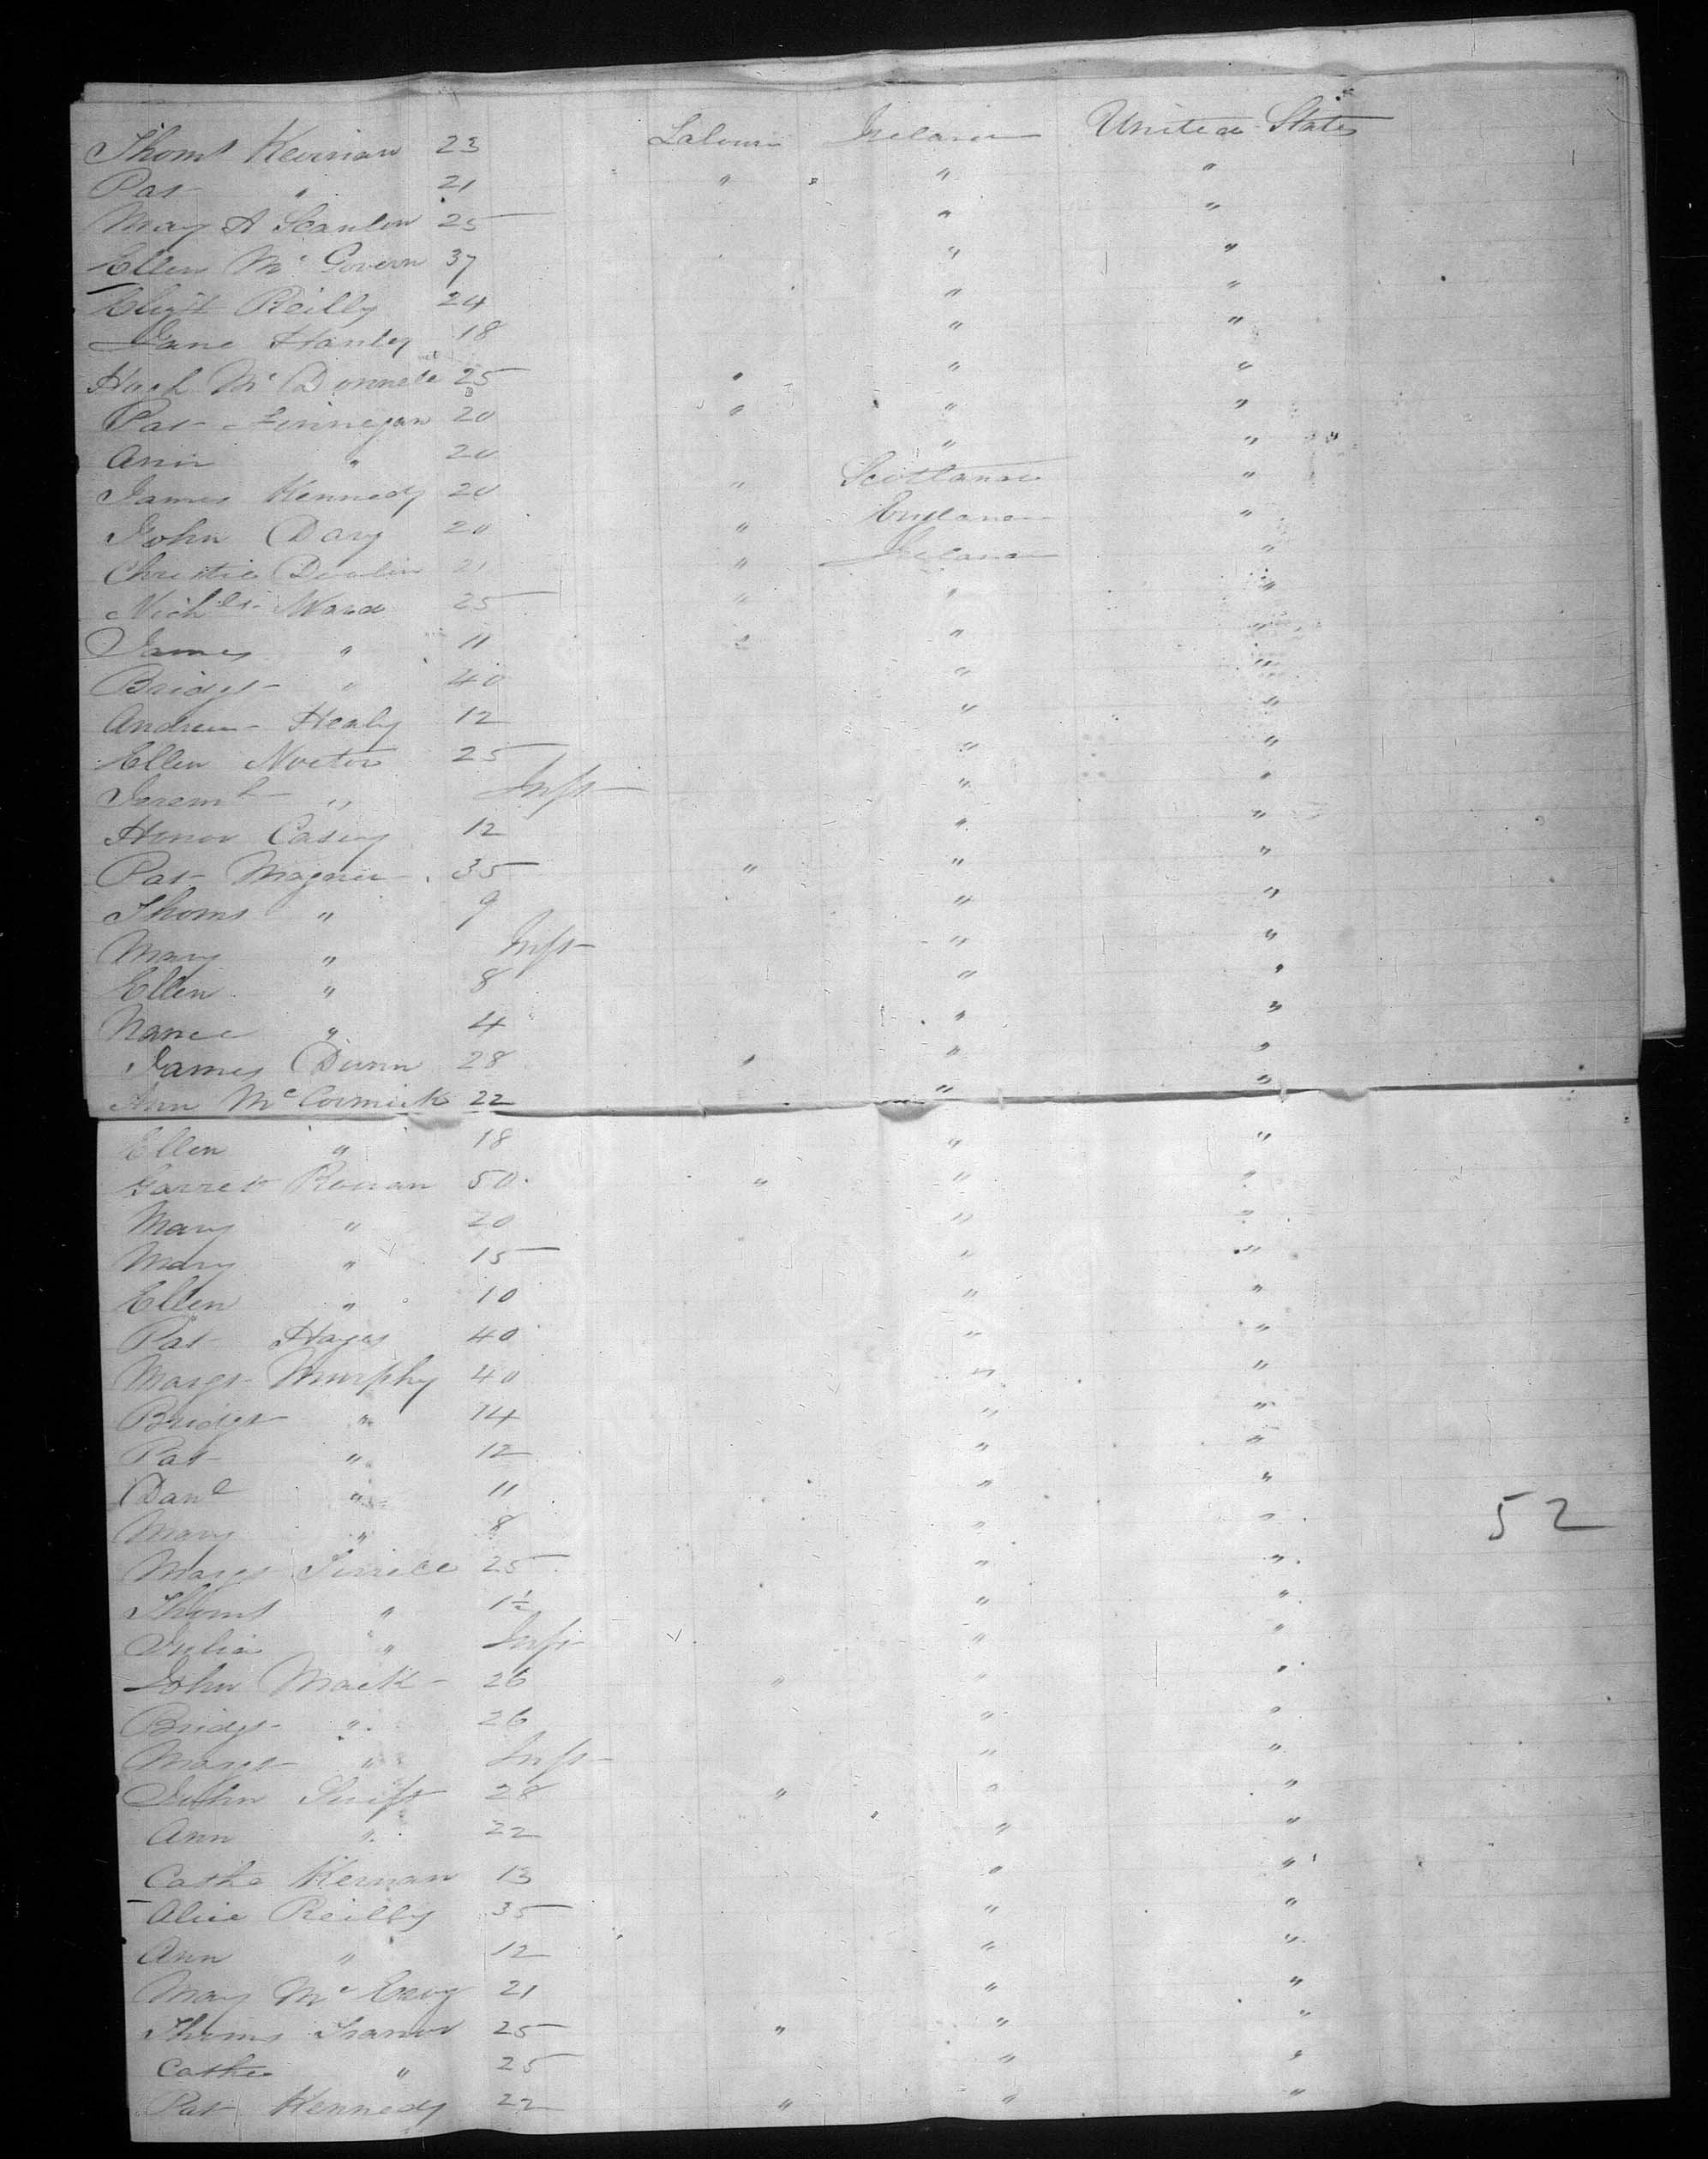 Thoms Kevinan 23 Labour Ireland United States
Pat " 21 " " "
Mary A Scanlon 25 " "
Ellen Mc Govern 37 " "
Elizt Reilly 24 " "
Jane Hanley 18 " "
Hugh Mc Donnell 25 " " "
Pat Finnegan 20 " " "
Ann " 20 " "
James Kennedy 20 " Scotland "
John Davy 20 " England "
Christie Devlin 21 " Ireland "
Nichls Ward 25 " " "
James " 11 " " "
Bridgt " 40 " "
Andrew Healy 12 " "
Ellen Norton 25 " "
Jeremh " Inft " "
Honor Casey 12 " "
Pat Magner 35 " " "
Thoms " 9 " "
Mary " Inft " "
Ellen " 8 " "
Nance " 4 " "
James Dunn 28 " " "
Ann Mc Cormick 22 " "
Ellen " 18 " "
Garrett Ronan 50 " " "
Mary " 20 " "
Mary " 15 " "
Ellen " 10 " "
Pat Hayes 40 " "
Margt Murphy 40 " "
Bridgt " 14 " "
Pat " 12 " "
Danl " 11 " "
Mary " 8 " "
52
Margt 25 " "
Thoms " 1½ " "
Julia " Inft " "
John Mack 26 " " "
Bridgt " 26 " "
Margt " Inft " "
John Swift 28 " " "
Ann " 22 " "
Cathe Kernan 13 " "
Alice Reilly 35 " "
Ann " 12 " "
Mary Mc Evoy 21 " "
Thoms 25 " " "
Cathe " 25 " "
Pat Kennedy 22 " " "